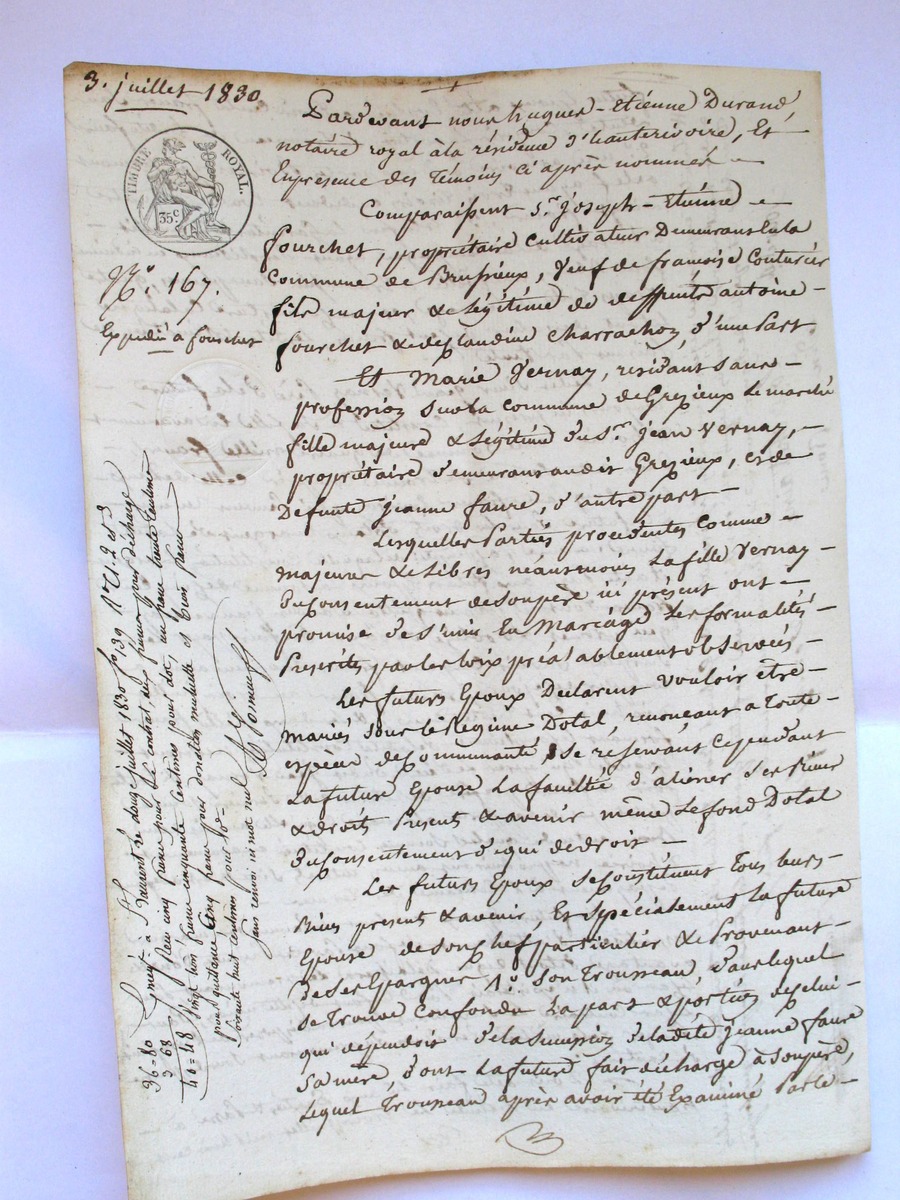 3. juillet 1830.
TIMBRE ROYAL.
35 c
N.º 167.
Expédié à fourchet
Pardevant nous hugues-Etienne Durand
notaire royal à la résidence d'hauterivoire, Et
En présence des Témoins ci après nommés
Comparaissent S.r Joseph-Etienne
fourchet, propriétaire cultivateur Demeurant sur la
Commune de Brussieux, veuf de françoise Couturier
fils majeur & légitime de deffunts antoine
fourchet & de glaudine Charrachon, d'une Part
Et Marie Vernay, résidant sans
profession sur la commune de Grezieux Le marché
fille majeure & légitime du S.r Jean Vernay,
propriétaire demeurant audit Grezieux, et de
Defunte Jeanne faure, d'autre part
Lesquelles Parties procédantes comme
majeures & Libres néantmoins La fille Vernay
Du consentement de son père ici présent ont
promise de s'unir En Mariage Les formalités
Prescrites par les loix préalablement observées
Les futurs Epoux Déclarent vouloir être
mariés sous le Régime Dotal, renonçant a toute
espèce de communauté se reservant cependant
La future Epouse La faculté d'aliéner ses Biens
& droits Present & avenir même Le fond Dotal
du consentement de qui de droit
Les futurs Epoux se constituent Tous leurs
Biens present & avenir Et spécialement La future
Epouse de son chef particulier & Provenant
de ses Epargnes 1º. son Trousseau, dans lequel
se Trouve confondu La part & portion de celui
qui dépendoit de la succession de ladite Jeanne faure
sa mère, dont La future fait décharge à son père,
Lequel Trousseau après avoir été Examiné Par le
Enregt. à St. Laurent le douze juillet 1830 fo. 139 Ro. C. 2 et 3
Reçu cinq francs pour le contrat, francs pour décharge
vingt trois francs cinquante centimes pour dot, un franc trente centimes
pour quittance Cinq francs pour donation mutuelle et trois francs
soixante huit centimes pour 10e
sans renvoi ni mot nul
36=80
3 68
40=48